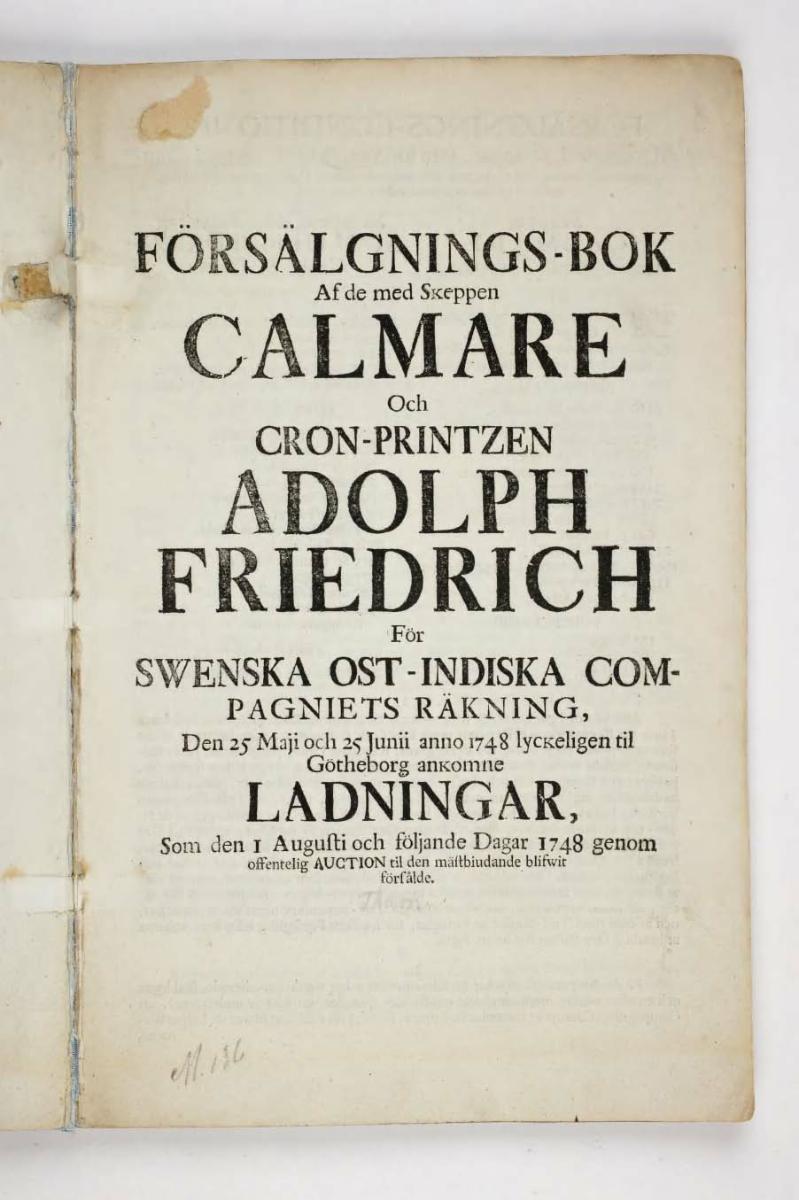 FÖRSÄLGNINGS-BOK
Af de med Skeppen
CALMARE
Och
CRON-PRINTZEN
ADOLPH
FRIEDRICH
För
SWENSKA OST-INDISKA COM-
PAGNIETS RÄKNING,
Den 25 Maji och 25 Junii anno 1748 lyckeligen til
Götheborg ankomne
LADNINGAR,
Som den 1 Augusti och följande Dagar 1748 genom
offentelig AUCTION til den mästbiudande blifwit
försålde.
M. 136